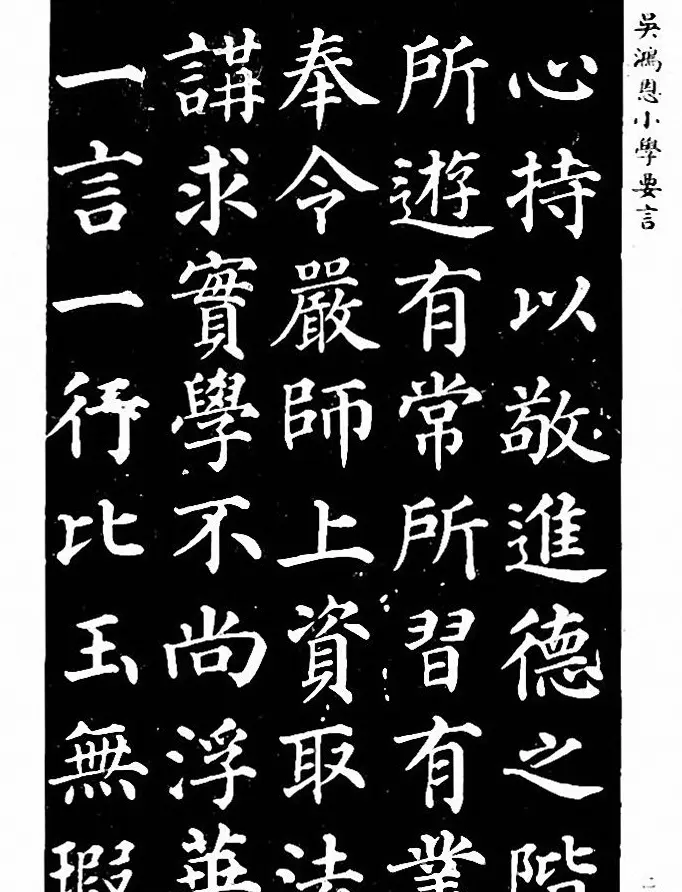 吳鴻恩小學要言
心持以敬進德之階
所遊有常所習有業
奉令嚴師上資取法
講求實學不尚浮華
一言一行比玉無瑕